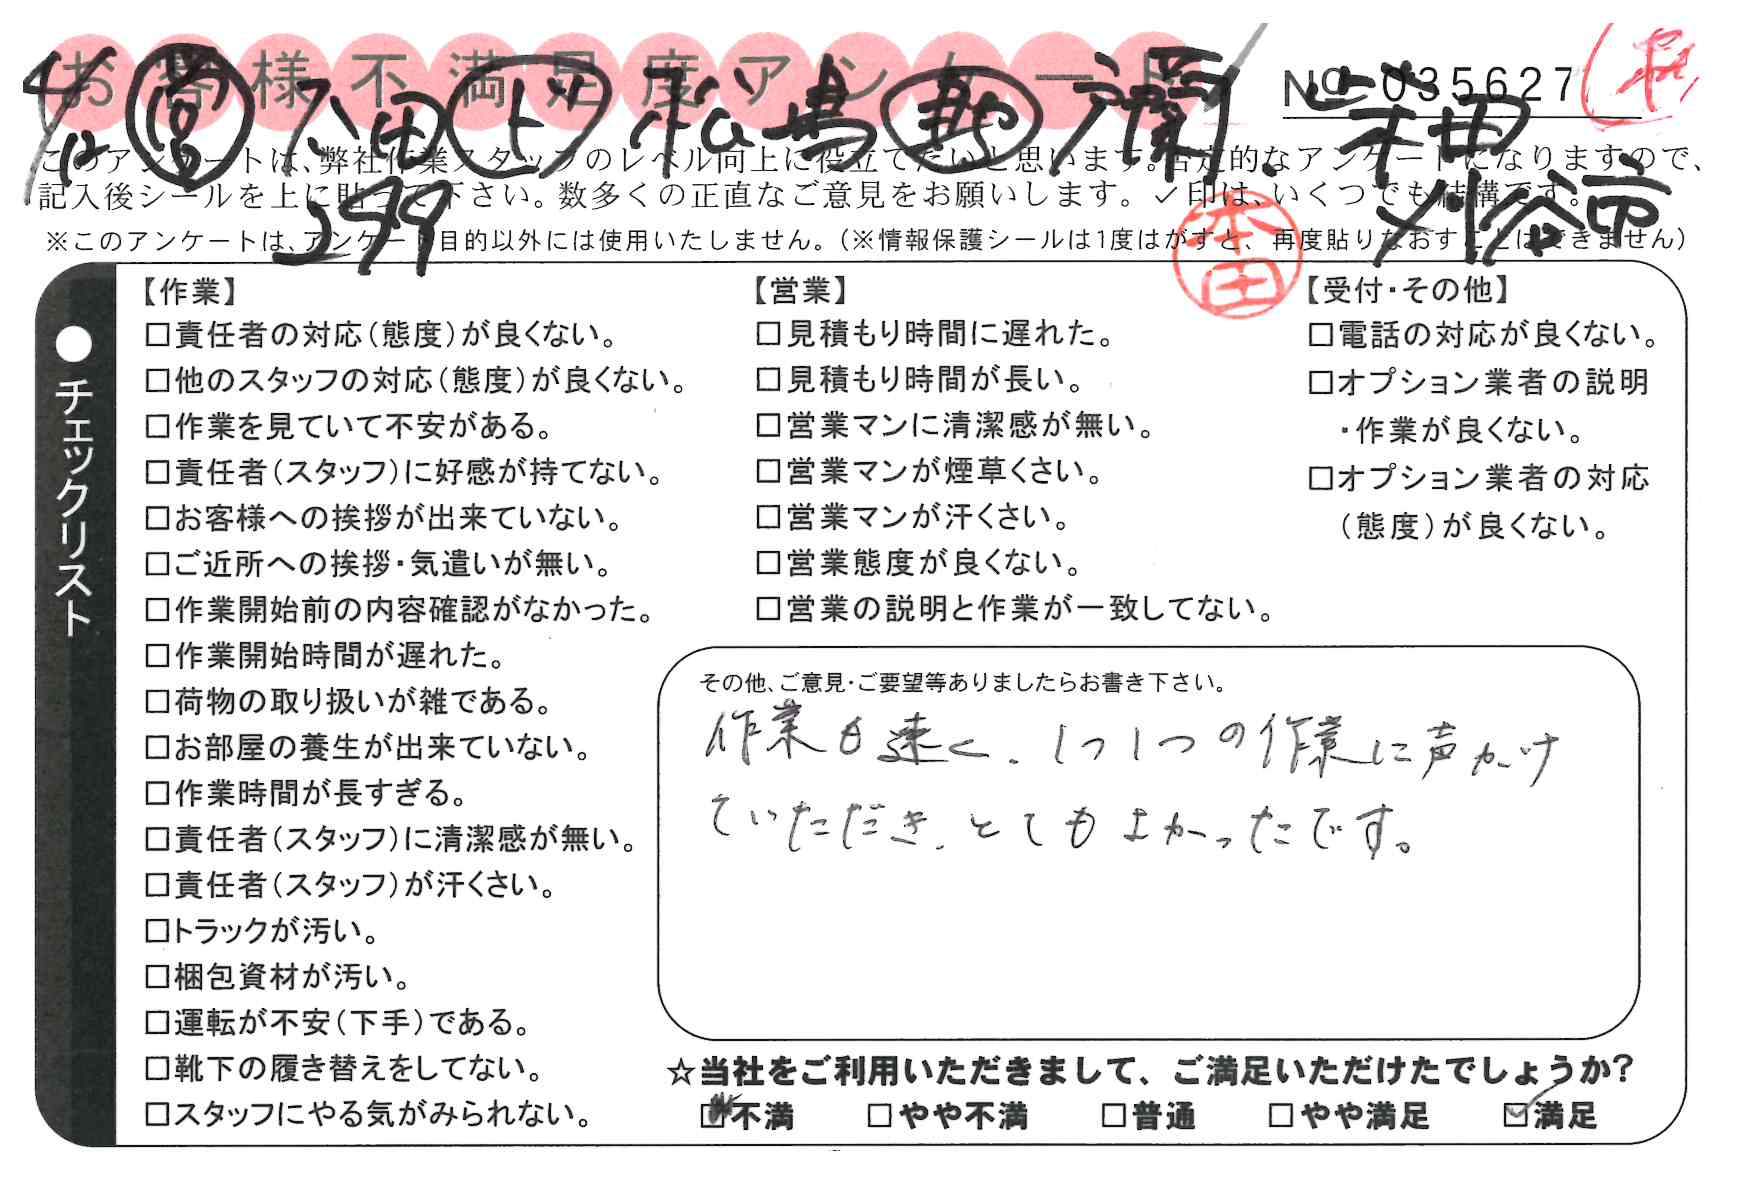 お客様不満足度アンケート
No 035627
4/12 営 八田 上 松島 助 瀬 植田 刈谷市
299
このアンケートは、弊社作業スタッフのレベル向上に役立てたいと思います。否定的なアンケートになりますので、
記入後シールを上に貼って下さい。数多くの正直なご意見をお願いします。✓印は、いくつでも結構です。
※このアンケートは、アンケート目的以外には使用いたしません。(※情報保護シールは1度はがすと、再度貼りなおすことはできません)
本田
●チェックリスト
【作業】
□責任者の対応(態度)が良くない。
□他のスタッフの対応(態度)が良くない。
□作業を見ていて不安がある。
□責任者(スタッフ)に好感が持てない。
□お客様への挨拶が出来ていない。
□ご近所への挨拶・気遣いが無い。
□作業開始前の内容確認がなかった。
□作業開始時間が遅れた。
□荷物の取り扱いが雑である。
□お部屋の養生が出来ていない。
□作業時間が長すぎる。
□責任者(スタッフ)に清潔感が無い。
□責任者(スタッフ)が汗くさい。
□トラックが汚い。
□梱包資材が汚い。
□運転が不安(下手)である。
□靴下の履き替えをしてない。
□スタッフにやる気がみられない。
【営業】
□見積もり時間に遅れた。
□見積もり時間が長い。
□営業マンに清潔感が無い。
□営業マンが煙草くさい。
□営業マンが汗くさい。
□営業態度が良くない。
□営業の説明と作業が一致してない。
【受付・その他】
□電話の対応が良くない。
□オプション業者の説明
・作業が良くない。
□オプション業者の対応
(態度)が良くない。
その他、ご意見・ご要望等ありましたらお書き下さい。
作業も速く、1つ1つの作業に声かけ
ていただき、とてもよかったです。
☆当社をご利用いただきまして、ご満足いただけたでしょうか?
□不満 □やや不満 □普通 □やや満足 ☑満足